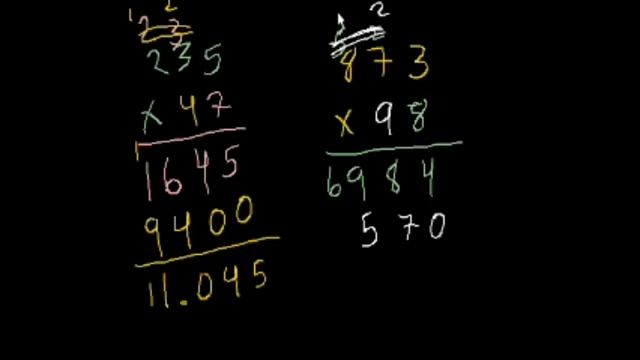 1 2
235
x 47
1645
9400
11.045
2
873
x 98
6984
570